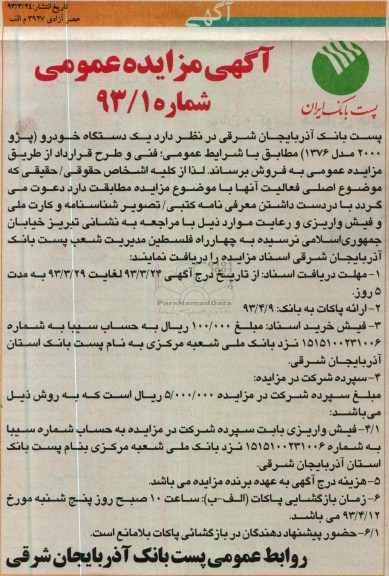 تاریخ انتشار: ۹۳/۳/۲۴
عصر آزادی ۳۹۲۷ م الف
آگهی
آگهی مزایده عمومی
شماره ۹۳/۱
پست بانک ایران
پست بانک آذربایجان شرقی در نظر دارد یک دستگاه خودرو (پژو
۲۰۰۰ مدل ۱۳۷۶) مطابق با شرایط عمومی؛ فنی و طرح قرارداد از طریق
مزایده عمومی به فروش برساند. لذا از کلیه اشخاص حقوقی/ حقیقی که
موضوع اصلی فعالیت آنها با موضوع مزایده مطابقت دارد دعوت می
گردد با در دست داشتن معرفی نامه کتبی/ تصویر شناسنامه و کارت ملی
و فیش واریزی و رعایت موارد ذیل با مراجعه به نشانی تبریز خیابان
جمهوری اسلامی نرسیده به چهارراه فلسطین مدیریت شعب پست بانک
آذربایجان شرقی اسناد مزایده را دریافت نمایند:
۱- مهلت دریافت اسناد: از تاریخ درج آگهی ۹۳/۳/۲۴ لغایت ۹۳/۳/۲۹ به مدت
۵ روز.
ParsNamadData
۲- ارائه پاکات به بانک: ۹۳/۴/۹
۳- فیش خرید اسناد: مبلغ ۱۰۰/۰۰۰ ریال به حساب سیبا به شماره
۱۵۱۵۱۰۰۲۳۱۰۰۶ نزد بانک ملی شعبه مرکزی به نام پست بانک استان
آذربایجان شرقی.
۴- سپرده شرکت در مزایده:
مبلغ سپرده شرکت در مزایده ۵/۰۰۰/۰۰۰ ریال است که به روش ذیل
می باشد:
۴/۱- فیش واریزی بابت سپرده شرکت در مزایده به حساب شماره سیبا
به شماره ۱۵۱۵۱۰۰۲۳۱۰۰۶ نزد بانک ملی شعبه مرکزی بنام پست بانک
استان آذربایجان شرقی.
۵- هزینه درج آگهی به عهده برنده مزایده می باشد.
۶- زمان بازگشایی پاکات (الف-ب): ساعت ۱۰ صبح روز پنج شنبه مورخ
۹۳/۴/۱۲ می باشد.
۶/۱- حضور پیشنهاد دهندگان در بازگشائی پاکات بلامانع است.
روابط عمومی پست بانک آذربایجان شرقی